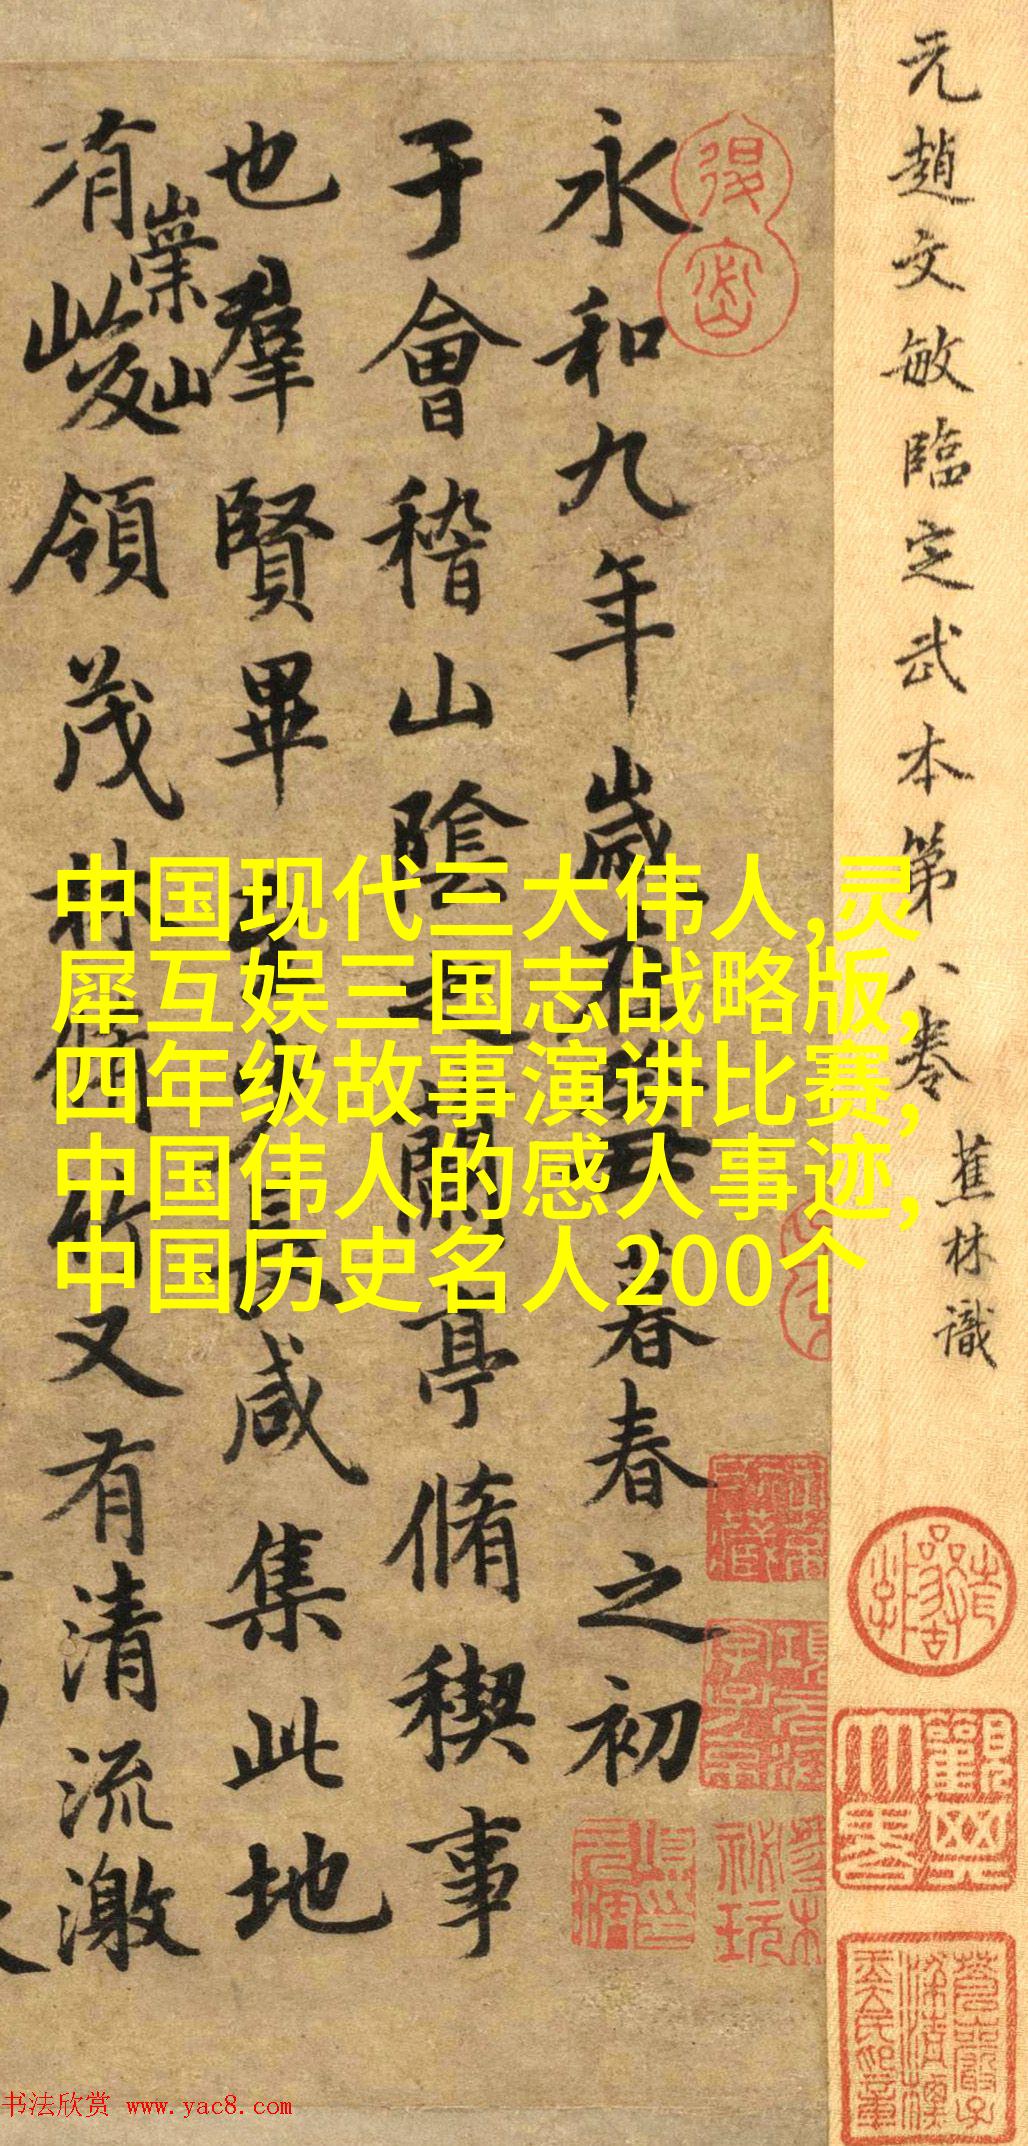 元趙文敏臨定武本第八卷 蕉林識
永和九年歲在暮春之初
于會稽山陰之蘭亭脩稧事
也羣賢畢至少長咸集此地
有崇山
峻領茂林脩竹又有清流激
中国现代三大伟人,灵
犀互娱三国志战略版,
四年级故事演讲比赛,
中国伟人的感人事迹,
中国历史名人200个
书法欣赏 www.yac8.com